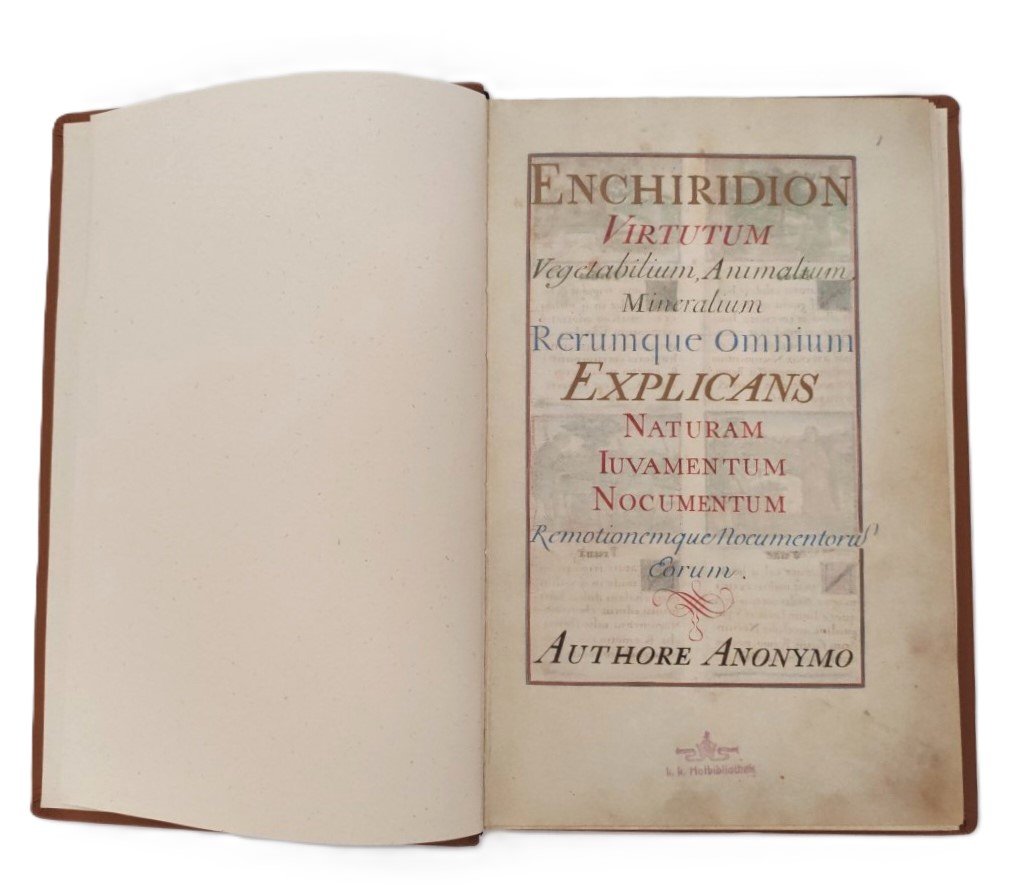 ENCHIRIDION
VIRTUTUM
Vegetabilium, Animalium,
Mineralium
Rerumque Omnium
EXPLICANS
NATURAM
IUVAMENTUM
NOCUMENTUM
Remotionemque Nocumentorū
Eorum.
AUTHORE ANONYMO
k. k. Hofbibliothek